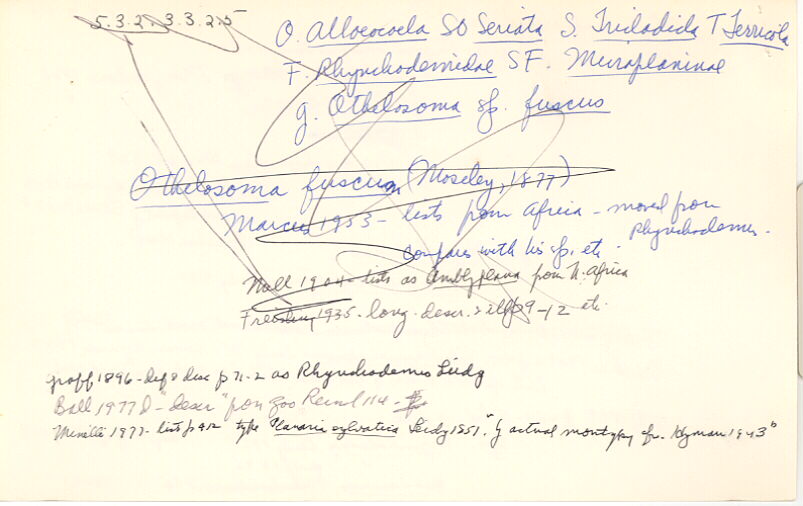 5.3.2.3.3.2.5
O. Alloeocoela SO Seriata S. Tricladida T Terricola
F. Rhynchodemidae SF. Microplaninae
g. Othelosoma sp. fuscus
Othelosoma fuscum (Moseley, 1877)
Marcus 1953 - lists from Africa - moved from
Rhynchodemus.
compares with his sp. etc.
1904 - lists as Amblyplana from N. Africa
1935 - long descr. & illp 9-12 etc.
Graff 1896 - def & disc p 71-2 as Rhynchodemus Leidy
Ball 1977D "descr" from Zoo Rec vol 114 -
1977 - lists p 412 type Planaria sylvatica Leidy 1851. "by actual monotypy fr. Hyman 1943"